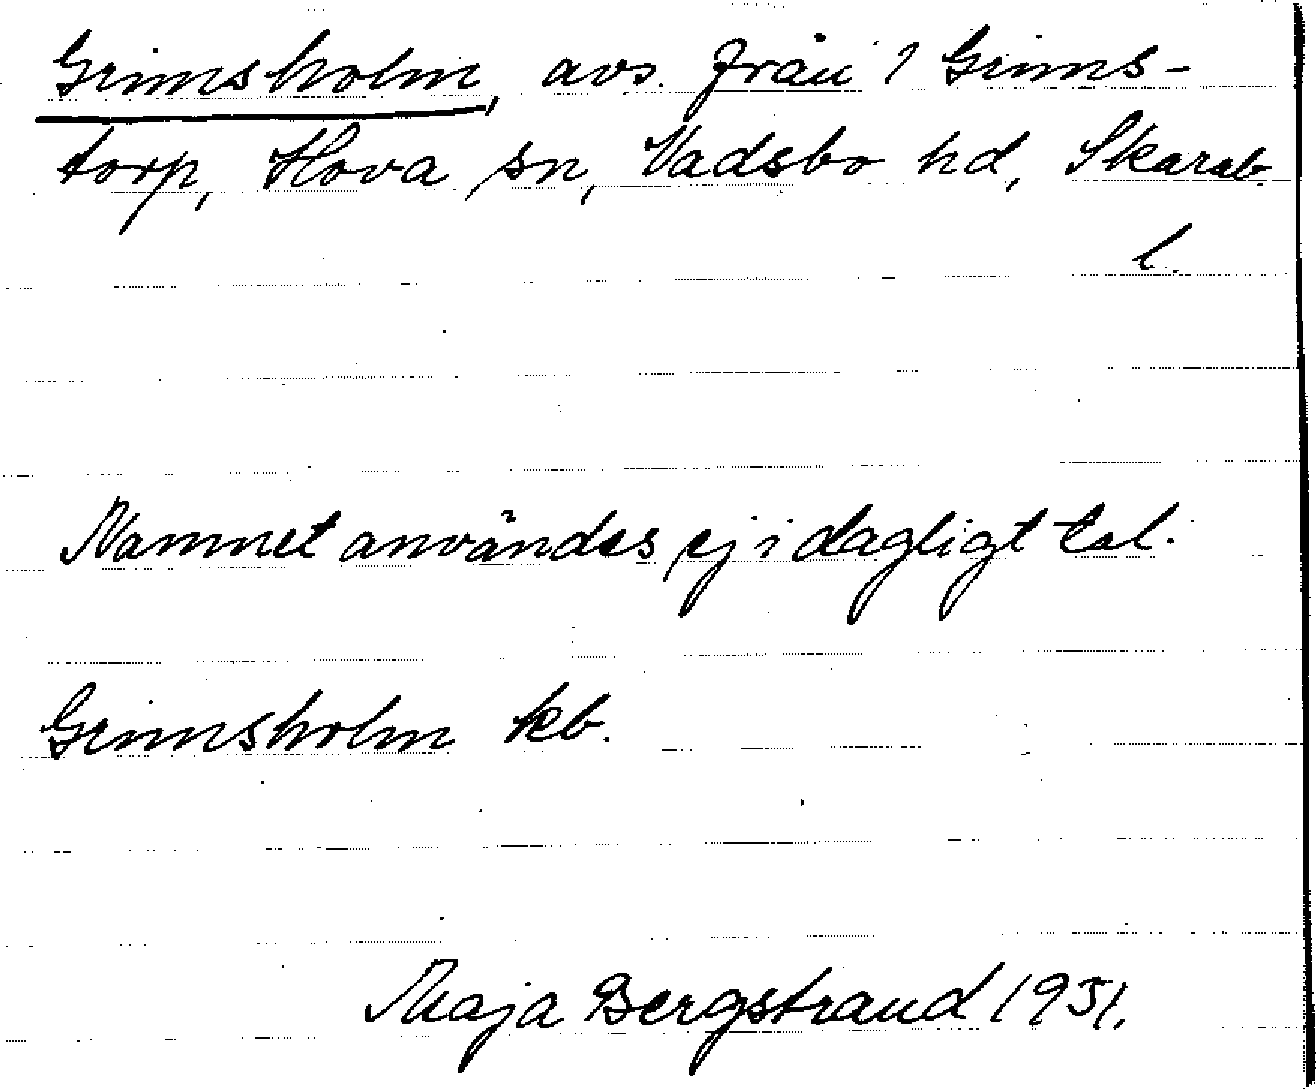 Grimsholm, avs. från 1 Grims-
torp, Hova sn, Vadsbo hd, Skarab.
l.
Namnet användes ej i dagligt tal.
Grimsholm kb.
Maja Bergstrand 1951.